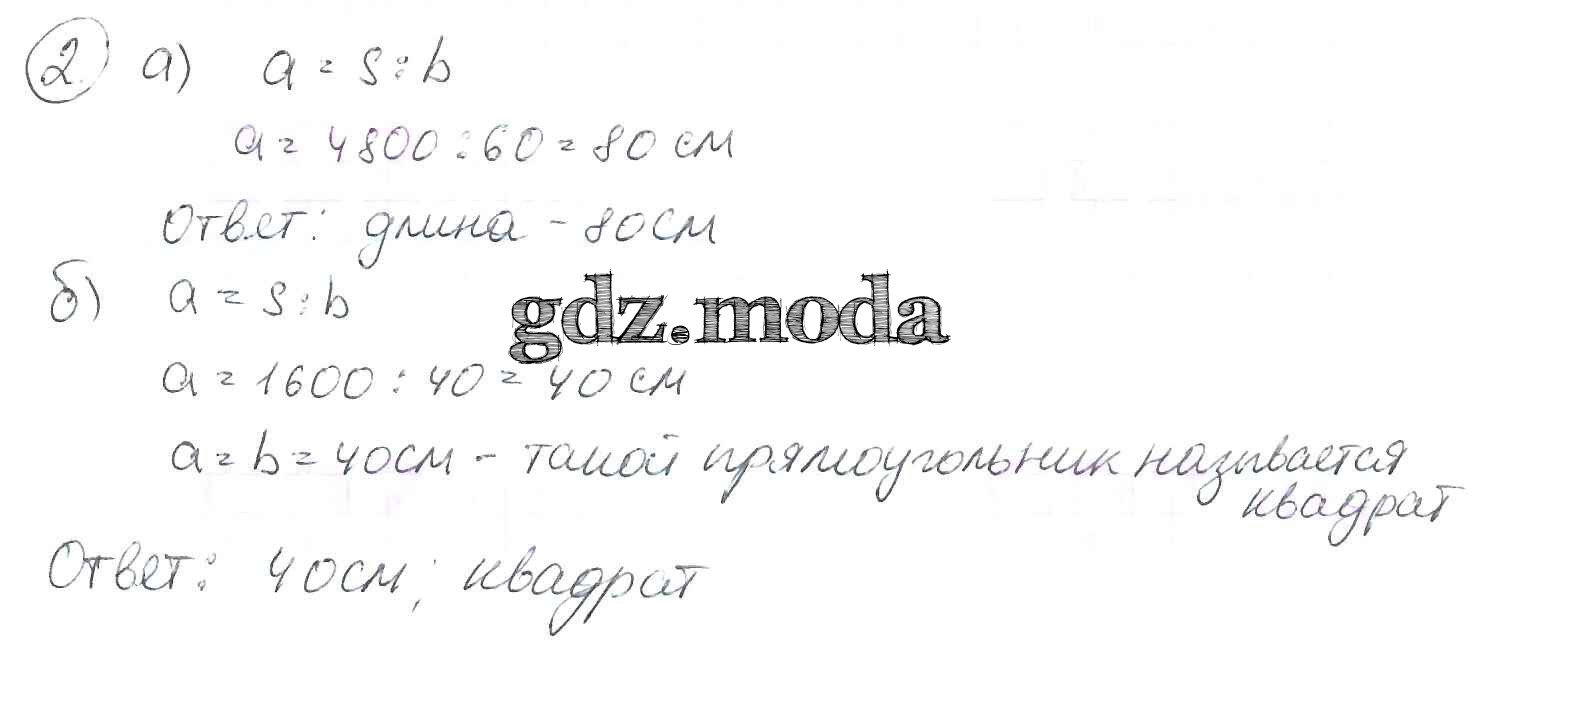 2 а) a = s : b
a = 4800 : 60 = 80 см
Ответ: длина - 80 см
б) a = s : b
gdz.moda
a = 1600 : 40 = 40 см
a = b = 40 см - такой прямоугольник называется
квадрат
Ответ: 40 см; квадрат